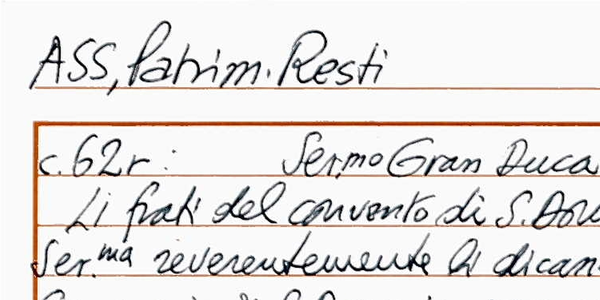 ASS, Patrim. Resti
c. 62r: Ser.mo Gran Duca
Li frati del convento di S. Dom
Ser.ma reverentemente li dican